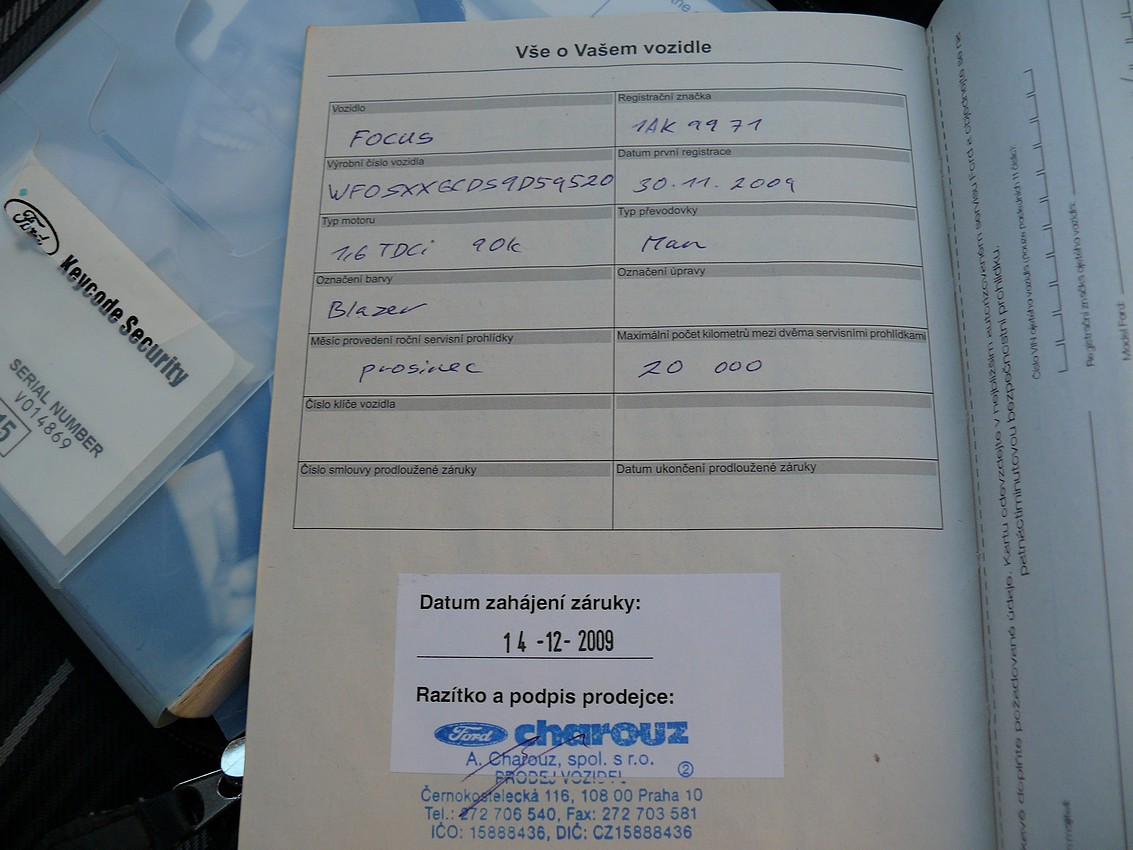 Vše o Vašem vozidle
Vozidlo
FOCUS
Registrační značka
1AK 9971
Výrobní číslo vozidla
WF0SXXGCDS9D59520
Datum první registrace
30.11.2009
Typ motoru
1,6 TDCi 90k
Typ převodovky
Man
Označení barvy
Blazer
Označení úpravy
Měsíc provedení roční servisní prohlídky
prosinec
Maximální počet kilometrů mezi dvěma servisními prohlídkami
20 000
Číslo klíče vozidla
Číslo smlouvy prodloužené záruky
Datum ukončení prodloužené záruky
Datum zahájení záruky:
14 -12- 2009
Razítko a podpis prodejce:
Ford charouz
A. Charouz, spol. s r.o.
PRODEJ VOZIDEL 2
Černokostelecká 116, 108 00 Praha 10
Tel.: 272 706 540, Fax: 272 703 581
IČO: 15888436, DIČ: CZ15888436
Ford
Keycode Security
SERIAL NUMBER
V014869
15
the
petnáctiminutovou bezpečnostní prohlídku.
Registrační značka ojetého vozidla:
Model Ford: